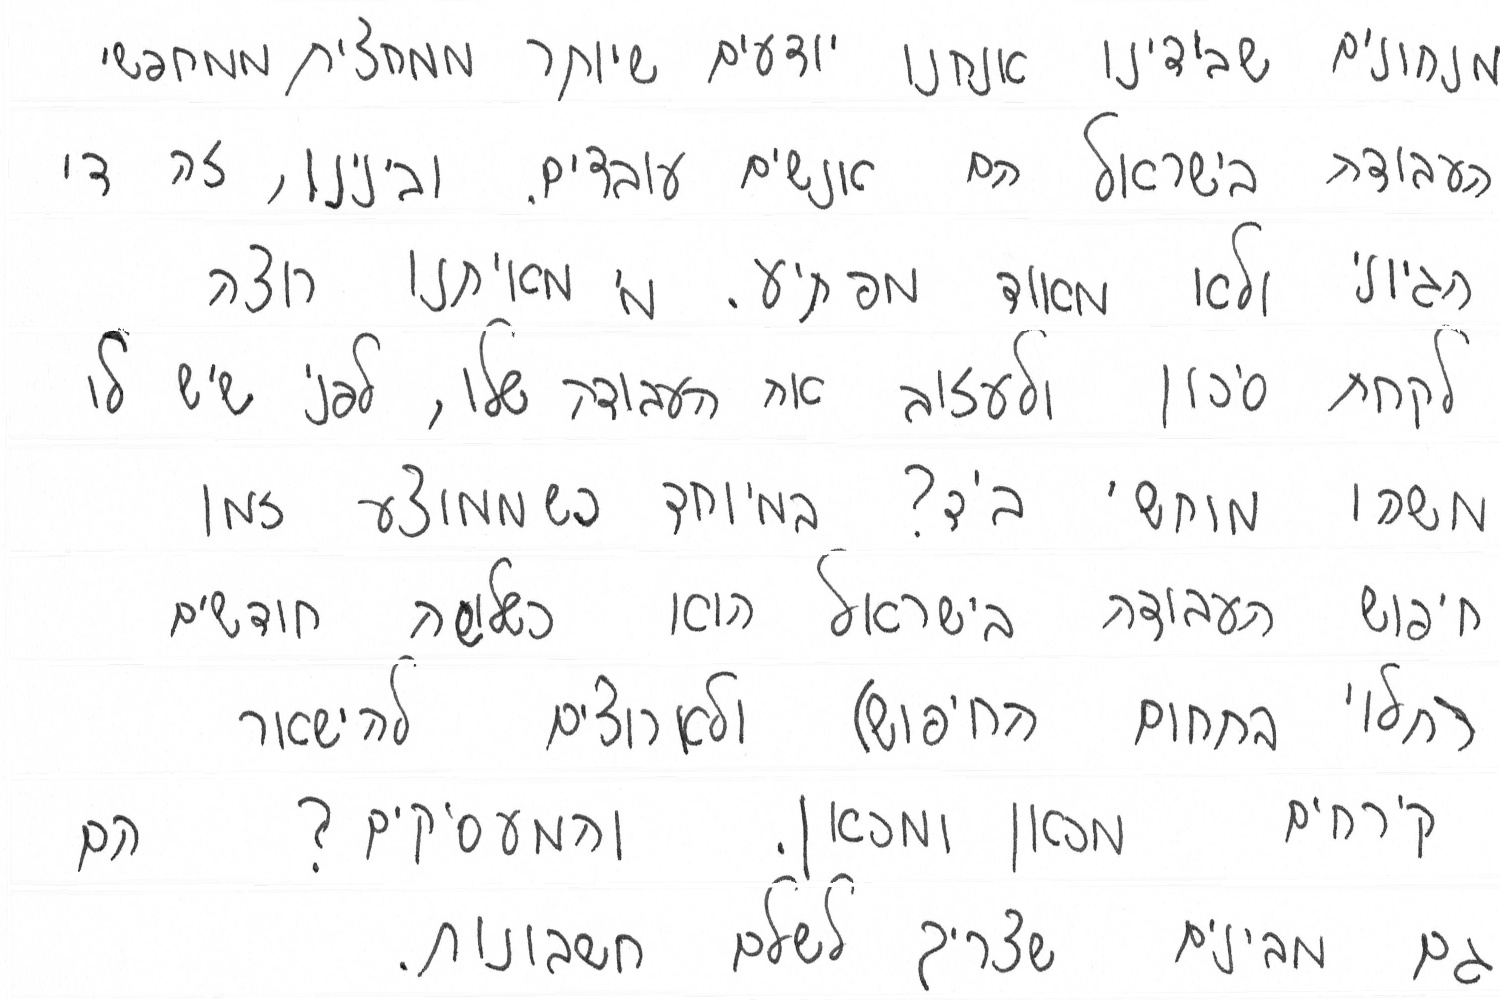 מנתונים שבידינו אנחנו יודעים שיותר ממחצית ממחפשי
העבודה בישראל הם אנשים עובדים. ובינינו, זה די
הגיוני ולא מאוד מפתיע. מי מאיתנו רוצה
לקחת סיכון ולעזוב את העבודה שלו, לפני שיש לו
משהו מוחשי ביד? במיוחד כשממוצע זמן
חיפוש העבודה בישראל הוא כשלושה חודשים
(תלוי בתחום החיפוש) ולא רוצים להישאר
קירחים מכאן ומכאן. והמעסיקים? הם
גם מבינים שצריך לשלם חשבונות.